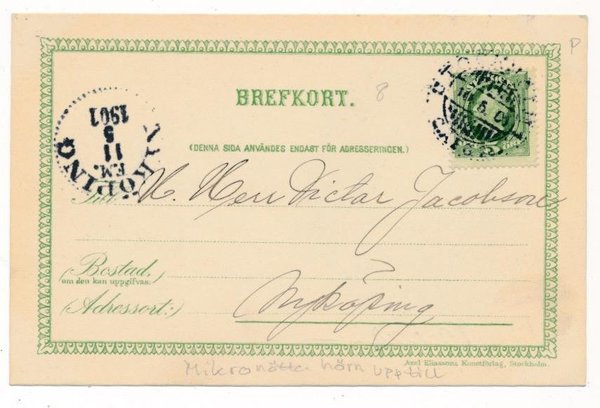 P
BREFKORT.
8
(DENNA SIDA ANVÄNDES ENDAST FÖR ADRESSERINGEN.)
NYKÖPING
11
F.M.
5
1901
Till H. Herr Victor Jacobson
(Bostad,)
om den kan uppgifvas.
(Adressort:)
Nyköping
Axel Eliassons Konstförlag, Stockholm.
Mikronötta hörn upptill